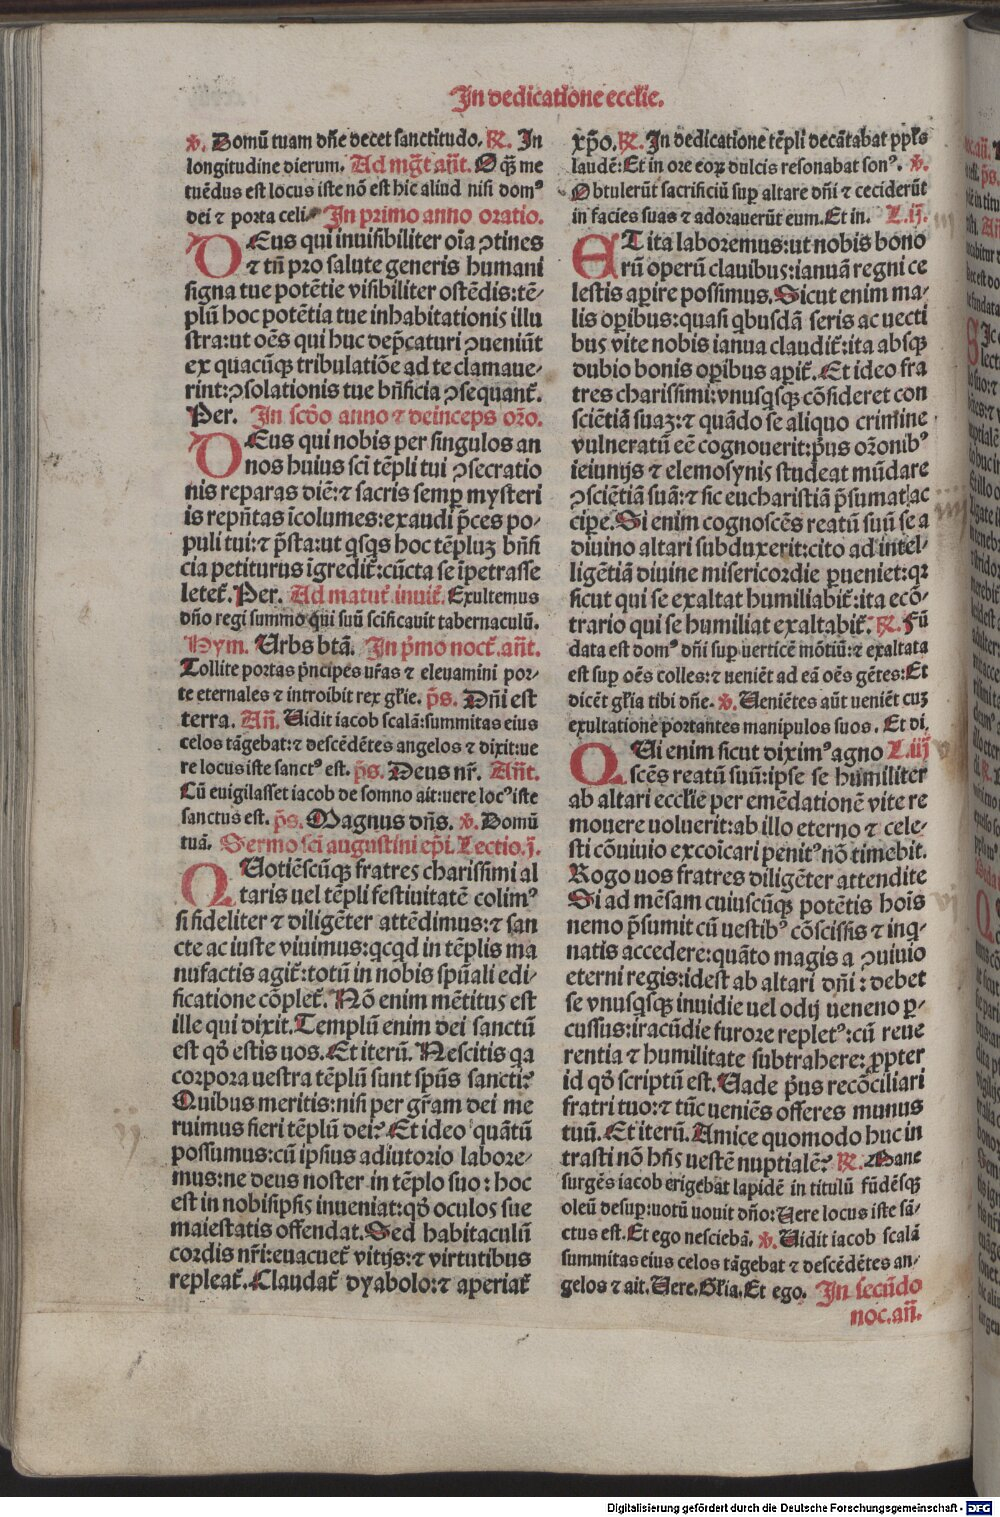 In dedicatione ecclie.
℣. Domū tuam dñe decet sanctitudo. ℟. In
longitudine dierum. Ad mḡt añt. O qȝ me
tuēdus est locus iste nō est hic aliud nisi domꝰ
dei ⁊ porta celi. In primo anno oratio.
DEus qui inuisibiliter oīa ꝯtines
⁊ tñ pro salute generis humani
signa tue potētie visibiliter ostēdis: tē-
plū hoc potētia tue inhabitationis illu
stra: ut oēs qui huc dep̄caturi ꝯueniūt
ex quacūqȝ tribulatiōe ad te clamaue-
rint: ꝯsolationis tue bñficia ꝯsequant̄.
Per. In scd̄o anno ⁊ deinceps orō.
DEus qui nobis per singulos an
nos huius sci tēpli tui ꝯsecratio
nis reparas diē: ⁊ sacris semꝑ mysteri
is rep̄ntas īcolumes: exaudi p̄ces po-
puli tui: ⁊ p̄sta: ut qsqs hoc tēpluȝ bñfi
cia petiturus īgredit̄: cūcta se īpetrasse
letet̄. Per. Ad matut̄ inuit̄. Exultemus
dño regi summo qui suū scificauit tabernaculū.
Hym. Urbs btā. In p̄mo noct̄. añt.
Tollite portas p̄ncipes ur̄as ⁊ eleuamini por-
te eternales ⁊ introibit rex glīe. p̄s. Dñi est
terra. Añ. Uidit iacob scalā: summitas eius
celos tāgebat: ⁊ descēdētes angelos ⁊ dixit: ue
re locus iste sanctꝰ est. p̄s. Deus nr̄. Añt.
Cū euigilasset iacob de somno ait: uere locꝰ iste
sanctus est. p̄s. Magnus dñs. ℣. Domū
tuā. Sermo sci augustini ep̄i. Lectio. j.
QUotiēscūqȝ fratres charissimi al
taris uel tēpli festiuitatē colimꝰ
si fideliter ⁊ diligēter attēdimus: ⁊ san
cte ac iuste viuimus: qcqd in tēplis ma
nufactis agit̄: totū in nobis spūali edi-
ficatione cōplet̄. Nō enim mētitus est
ille qui dixit. Templū enim dei sanctū
est qd̄ estis uos. Et iterū. Nescitis qa
corpora uestra tēplū sunt spūs sancti?
Quibus meritis: nisi per gr̄am dei me
ruimus fieri tēplū dei? Et ideo quātū
possumus: cū ipsius adiutorio labore-
mus: ne deus noster in tēplo suo: hoc
est in nobisipsis inueniat: qd̄ oculos sue
maiestatis offendat. Sed habitaculū
cordis nr̄i: euacuet̄ vitijs: ⁊ virtutibus
repleat̄. Claudat̄ dyabolo: ⁊ aperiat̄
xp̄o. ℟. In dedicatione tēpli decātabat ppl̄s
laudē: Et in ore eoꝝ dulcis resonabat sonꝰ. ℣.
Obtulerūt sacrificiū suꝑ altare dñi ⁊ ceciderūt
in facies suas ⁊ adorauerūt eum. Et in. L. ij.
ET ita laboremus: ut nobis bono
rū operū clauibus: ianuā regni ce
lestis aꝑire possimus. Sicut enim ma-
lis oꝑibus: quasi qbusdā seris ac uecti
bus vite nobis ianua claudit̄: ita absqȝ
dubio bonis oꝑibus aꝑit̄. Et ideo fra
tres charissimi: vnusqsqȝ cōsideret con
sciētiā suaȝ: ⁊ quādo se aliquo crimine
vulneratū eē cognouerit: p̄us orōnibꝰ
ieiunijs ⁊ elemosynis studeat mūdare
ꝯsciētiā suā: ⁊ sic eucharistiā p̄sumat ac
cipe. Si enim cognoscēs reatū suū se a
diuino altari subduxerit: cito ad intel-
ligētiā diuine misericordie ꝑueniet: qꝛ
sicut qui se exaltat humiliabit̄: ita ecō-
trario qui se humiliat exaltabit̄. ℟. Fū
data est domꝰ dñi suꝑ uerticē mōtiū: ⁊ exaltata
est suꝑ oēs colles: ⁊ ueniēt ad eā oēs gētes: Et
dicēt glīa tibi dñe. ℣. Ueniētes aūt ueniēt cuȝ
exultatione portantes manipulos suos. Et di.
QUi enim sicut diximꝰ agno L. iij
scēs reatū suū: ipse se humiliter
ab altari ecclīe per emēdationē vite re
mouere uoluerit: ab illo eterno ⁊ cele-
sti cōuiuio excoīcari penitꝰ nō timebit.
Rogo uos fratres diligēter attendite
Si ad mēsam cuiuscūqȝ potētis hoīs
nemo p̄sumit cū uestibꝰ cōscissis ⁊ inq-
natis accedere: quāto magis a ꝯuiuio
eterni regis: idest ab altari dñi: debet
se vnusqsqȝ inuidie uel odij ueneno ꝑ-
cussus: iracūdie furore repletꝰ: cū reue
rentia ⁊ humilitate subtrahere: ꝓpter
id qd̄ scriptū est. Uade p̄us recōciliari
fratri tuo: ⁊ tūc ueniēs offeres munus
tuū. Et iterū. Amice quomodo huc in
trasti nō hñs uestē nuptialē? ℟. Mane
surgēs iacob erigebat lapidē in titulū fūdēsqȝ
oleū desuꝑ: uotū uouit dño: Uere locus iste sā-
ctus est. Et ego nesciebā. ℣. Uidit iacob scalā
summitas eius celos tāgebat ⁊ descēdētes an-
gelos ⁊ ait. Uere. Glīa. Et ego. In secūdo
noc. añ.
Digitalisierung gefördert durch die Deutsche Forschungsgemeinschaft - DFG